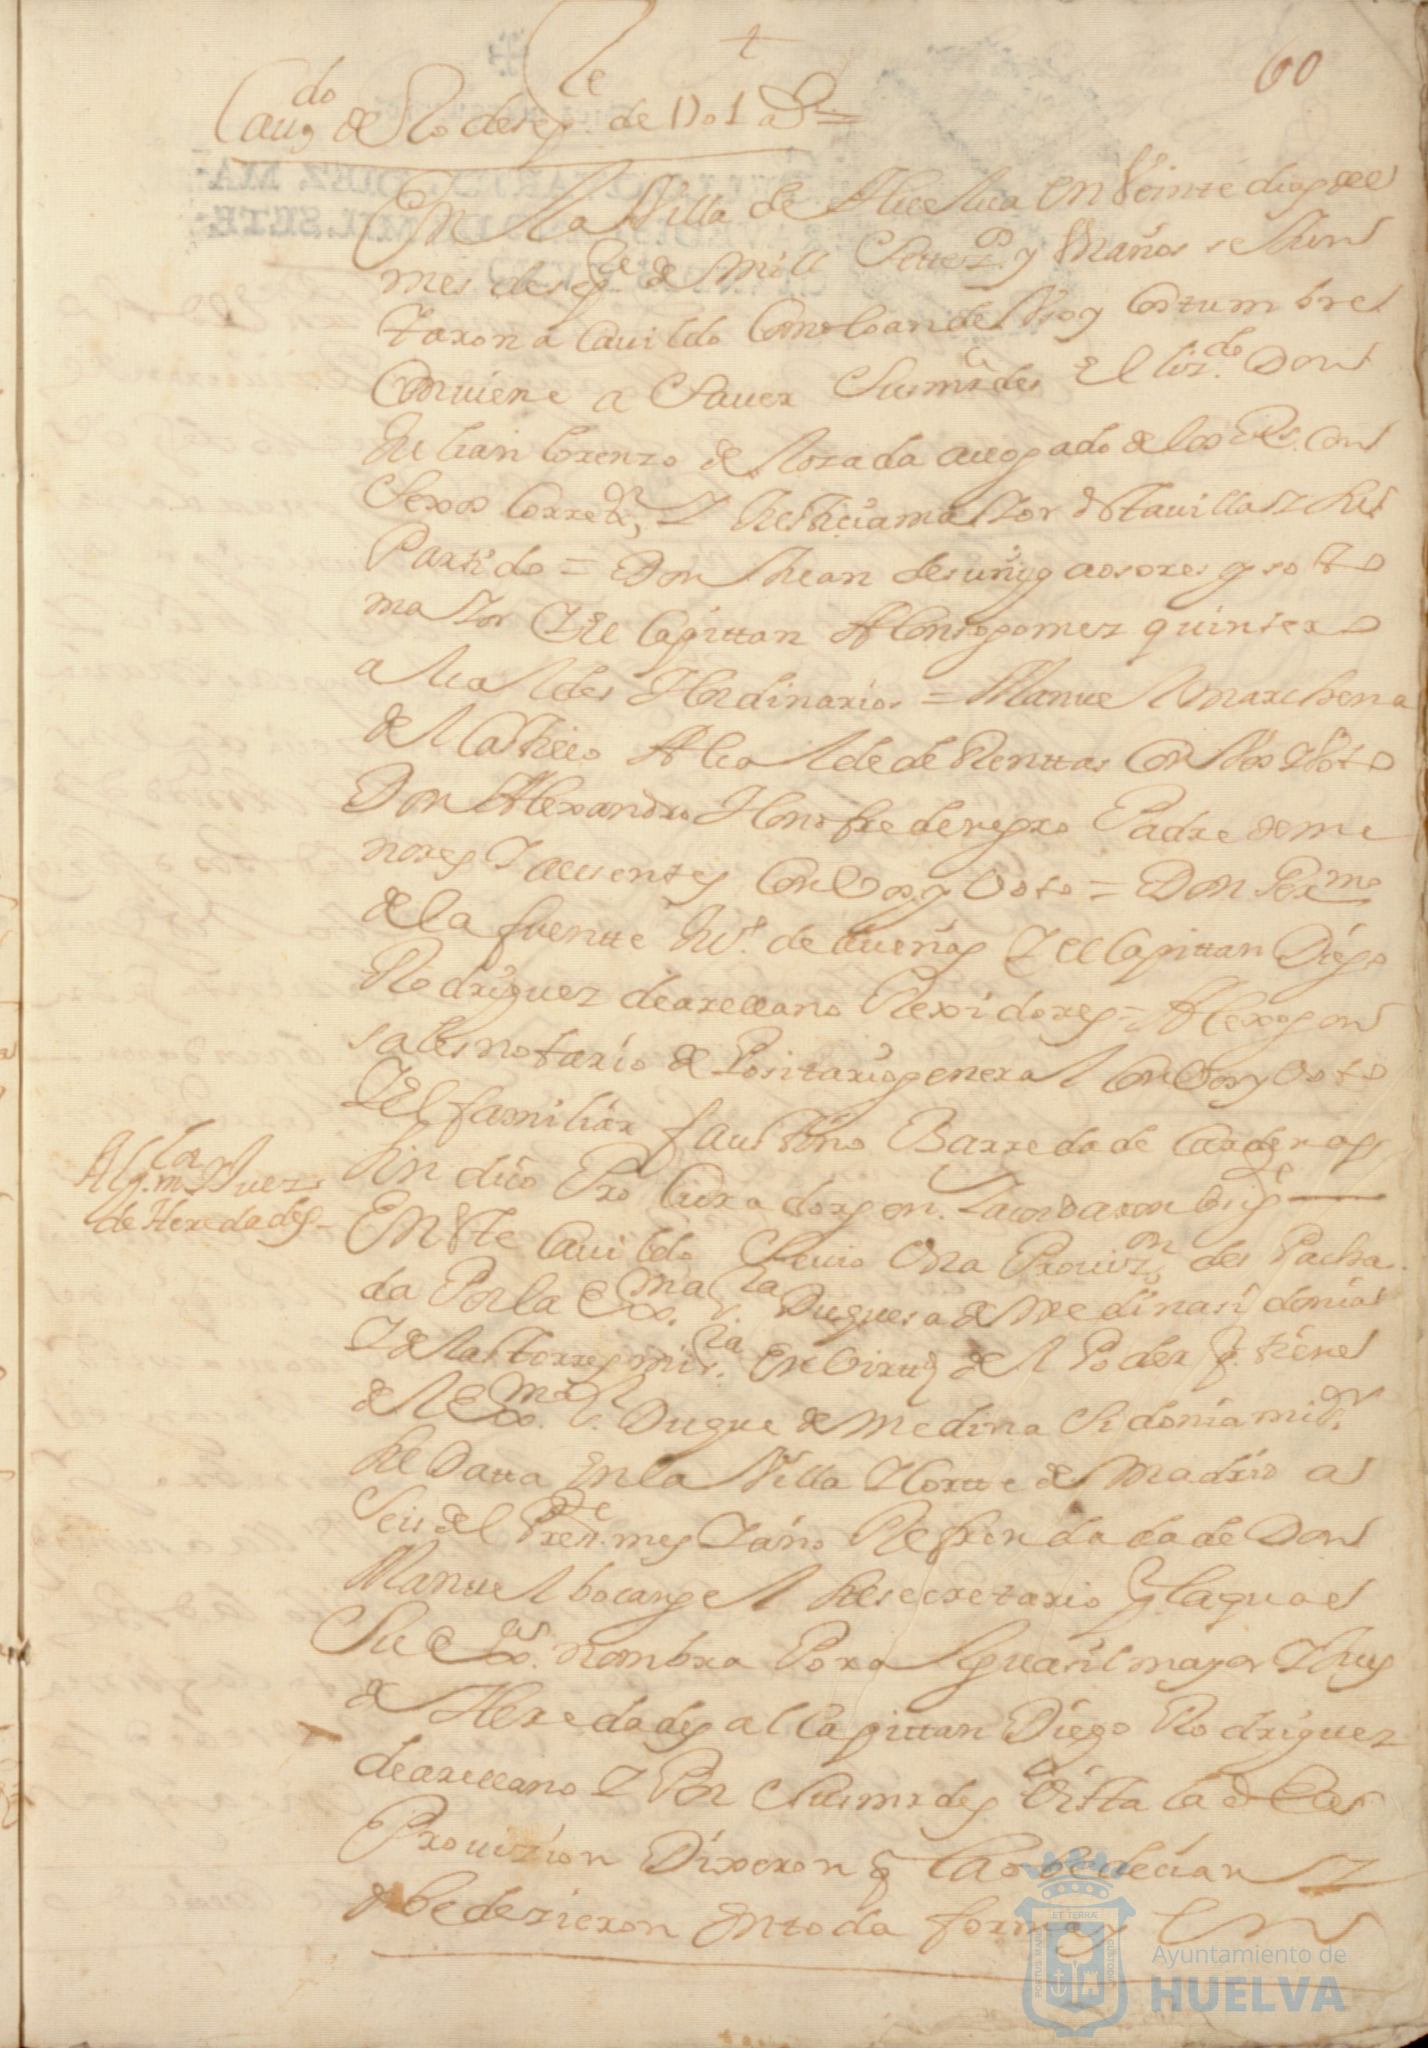 60
Cau.do de 20 de sep.e de 1701 a.s =
En la Villa de Huelua en Veinte dias del
mes de sep.e de mill Settez.os y Vn años se Jun
taron a Cauildo Como lo an de Vso y Costumbre
Conuiene a Sauer Sus mrdes El liz.do Don
Julian lorenzo de Lozada auogado de los Rs. Con
Sexos Corre.or y Justicia maior de sta uilla y su
Partido = Don Juan de suñyga osores y soto
maior y el Capittan Alonso gomez quintero
alcaldes Hordinarios = Manuel marchena
del Castillo Alcalde de Renttas Con Vos y Voto
Don Alexandro Honofre de negro Padre de me
nores y ausentes Con Vos y Voto = Don Ger.mo
de la fuentte de dueñas y el Capittan Diego
Rodriguez de arellano Rexidores = Alexo gon
sales notario de Positario general Con Vos y Voto
y el familiar faustino Barreda de Cardenas
sindico Procurador gen. y acordaron lo sig.e
Alg. m.or y Juez
de Heredades
En ste Cauildo se uio Vna Prouiz.on des Pacha
da Por la Ex.ma S.ra Duquesa de Medina sidonia
y de las torres mi s.ra En Virtud del Poder q. tiene
del Ex.mo S. Duque de Medina Sidonia mi s.r
su Data en la Villa y Cortte de Madrid a
Seis del Press.te mes y año Refrendada de Don
Manuel bocangel su secretario Por la qual
Su Ex.as nombra Por alguasil mayor y Jues
de Heredades al Capittan Diego Rodriguez
de arellano y Por Sus mrdes Vista la dha
Prouizion Dixeron q la obedecian y
obedezieron en toda forma y en
ET TERRÆ
PORTUS MARIS
CUSTODIA
Ayuntamiento de
HUELVA